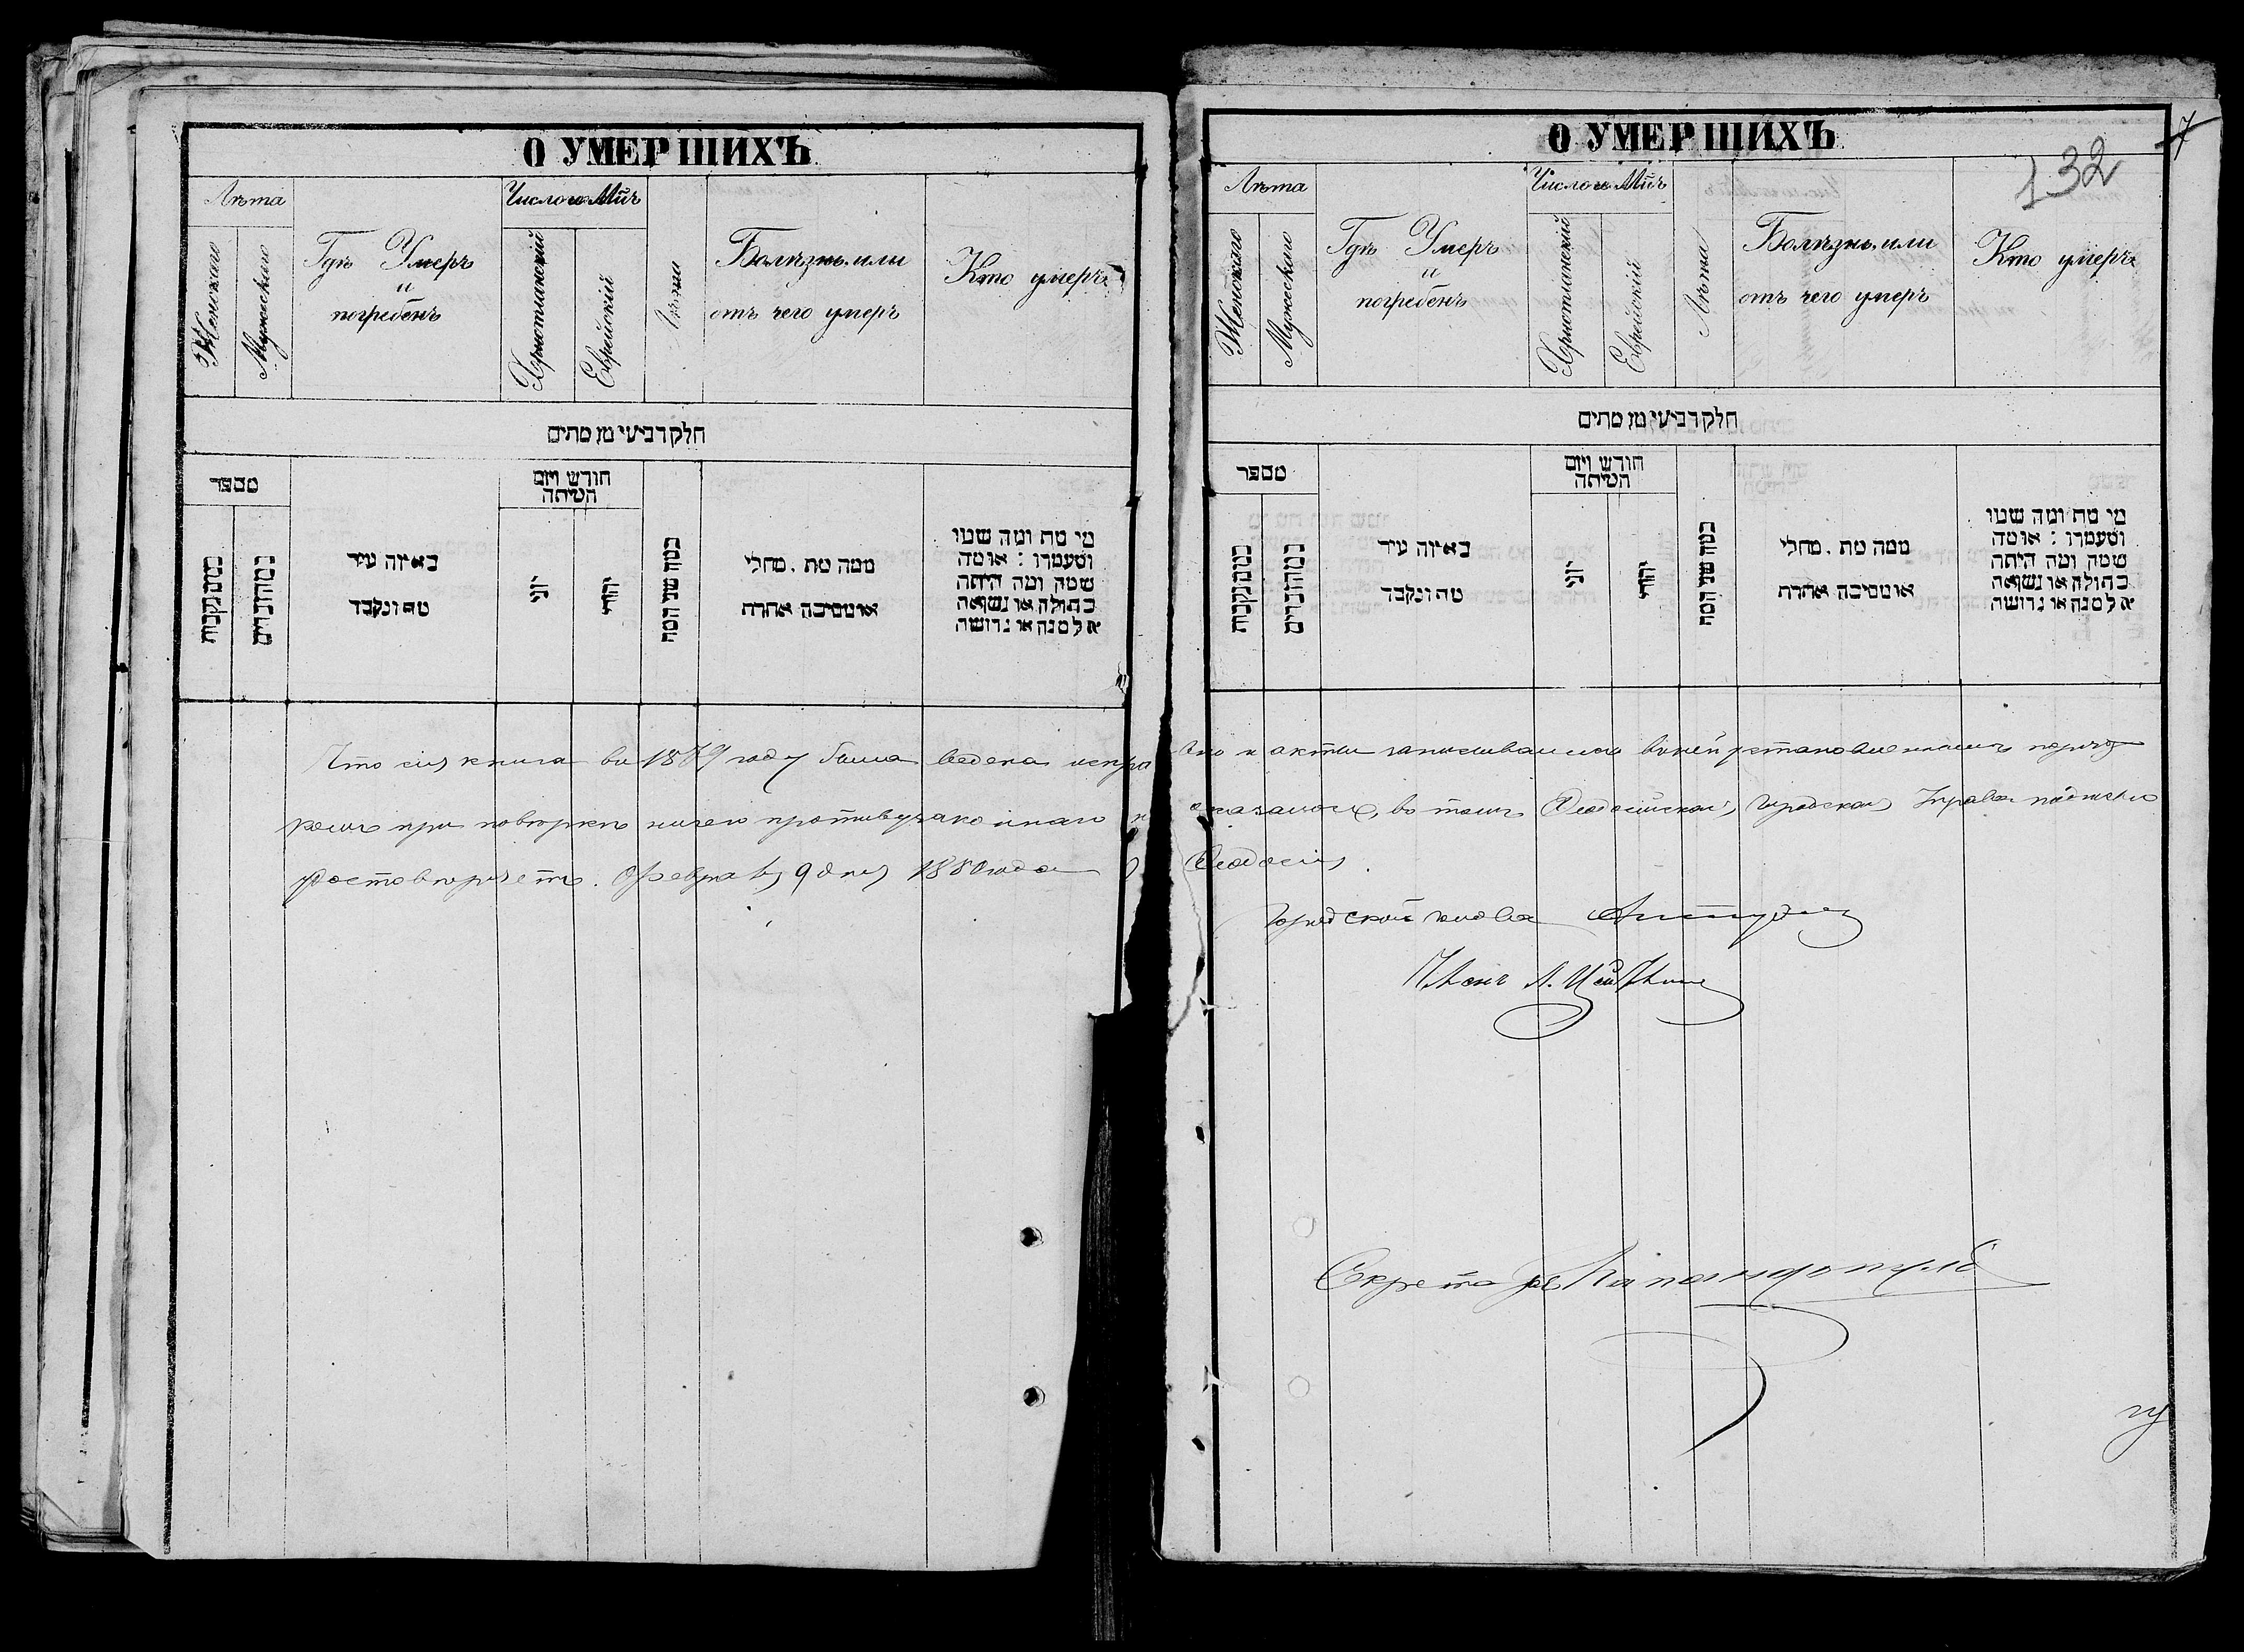 О УМЕРШИХЪ
Лѣта
Женскаго
Мужескаго
Гдѣ Умеръ
и
погребенъ
Число и Мцъ
Христіанскій
Еврейскій
Лѣта
Болѣзнь или
отъ чего умеръ
Кто умеръ
חלק רביעי מן מתים
מספר
כמות נקבות
כמות זכרים
באיזה עיר
מת ונקבר
חודש ויום
המיתה
יוני
יהודי
כמה שני המת
ממה מת . מחלי
או מסיבה אחרת
מי מת ומה שמו
ומעמדו : או מה
שמה ומה היתה
בתולה או נשואה
אלמנה או גרושה
Что сія книга въ 1879 году была ведена испра
комъ при повѣркѣ ничего противузаконнаго н
удостовѣряетъ. Февраля 9 дня 1880 года
О УМЕРШИХЪ
132
7
Лѣта
Женскаго
Мужескаго
Гдѣ Умеръ
и
погребенъ
Число и Мцъ
Христіанскій
Еврейскій
Лѣта
Болѣзнь или
отъ чего умеръ
Кто умеръ
חלק רביעי מן מתים
מספר
כמות נקבות
כמות זכרים
באיזה עיר
מת ונקבר
חודש ויום
המיתה
יוני
יהודי
כמה שני המת
ממה מת . מחלי
או מסיבה אחרת
מי מת ומה שמו
ומעמדו : או מה
שמה ומה היתה
בתולה או נשואה
אלמנה או גרושה
но и акты записывались въ ней установленнымъ поряд
оказалось, въ томъ Ѳеодосійская Городская Управа подписью
Ѳеодосія
Городской голова
Членъ А.
Секретарь